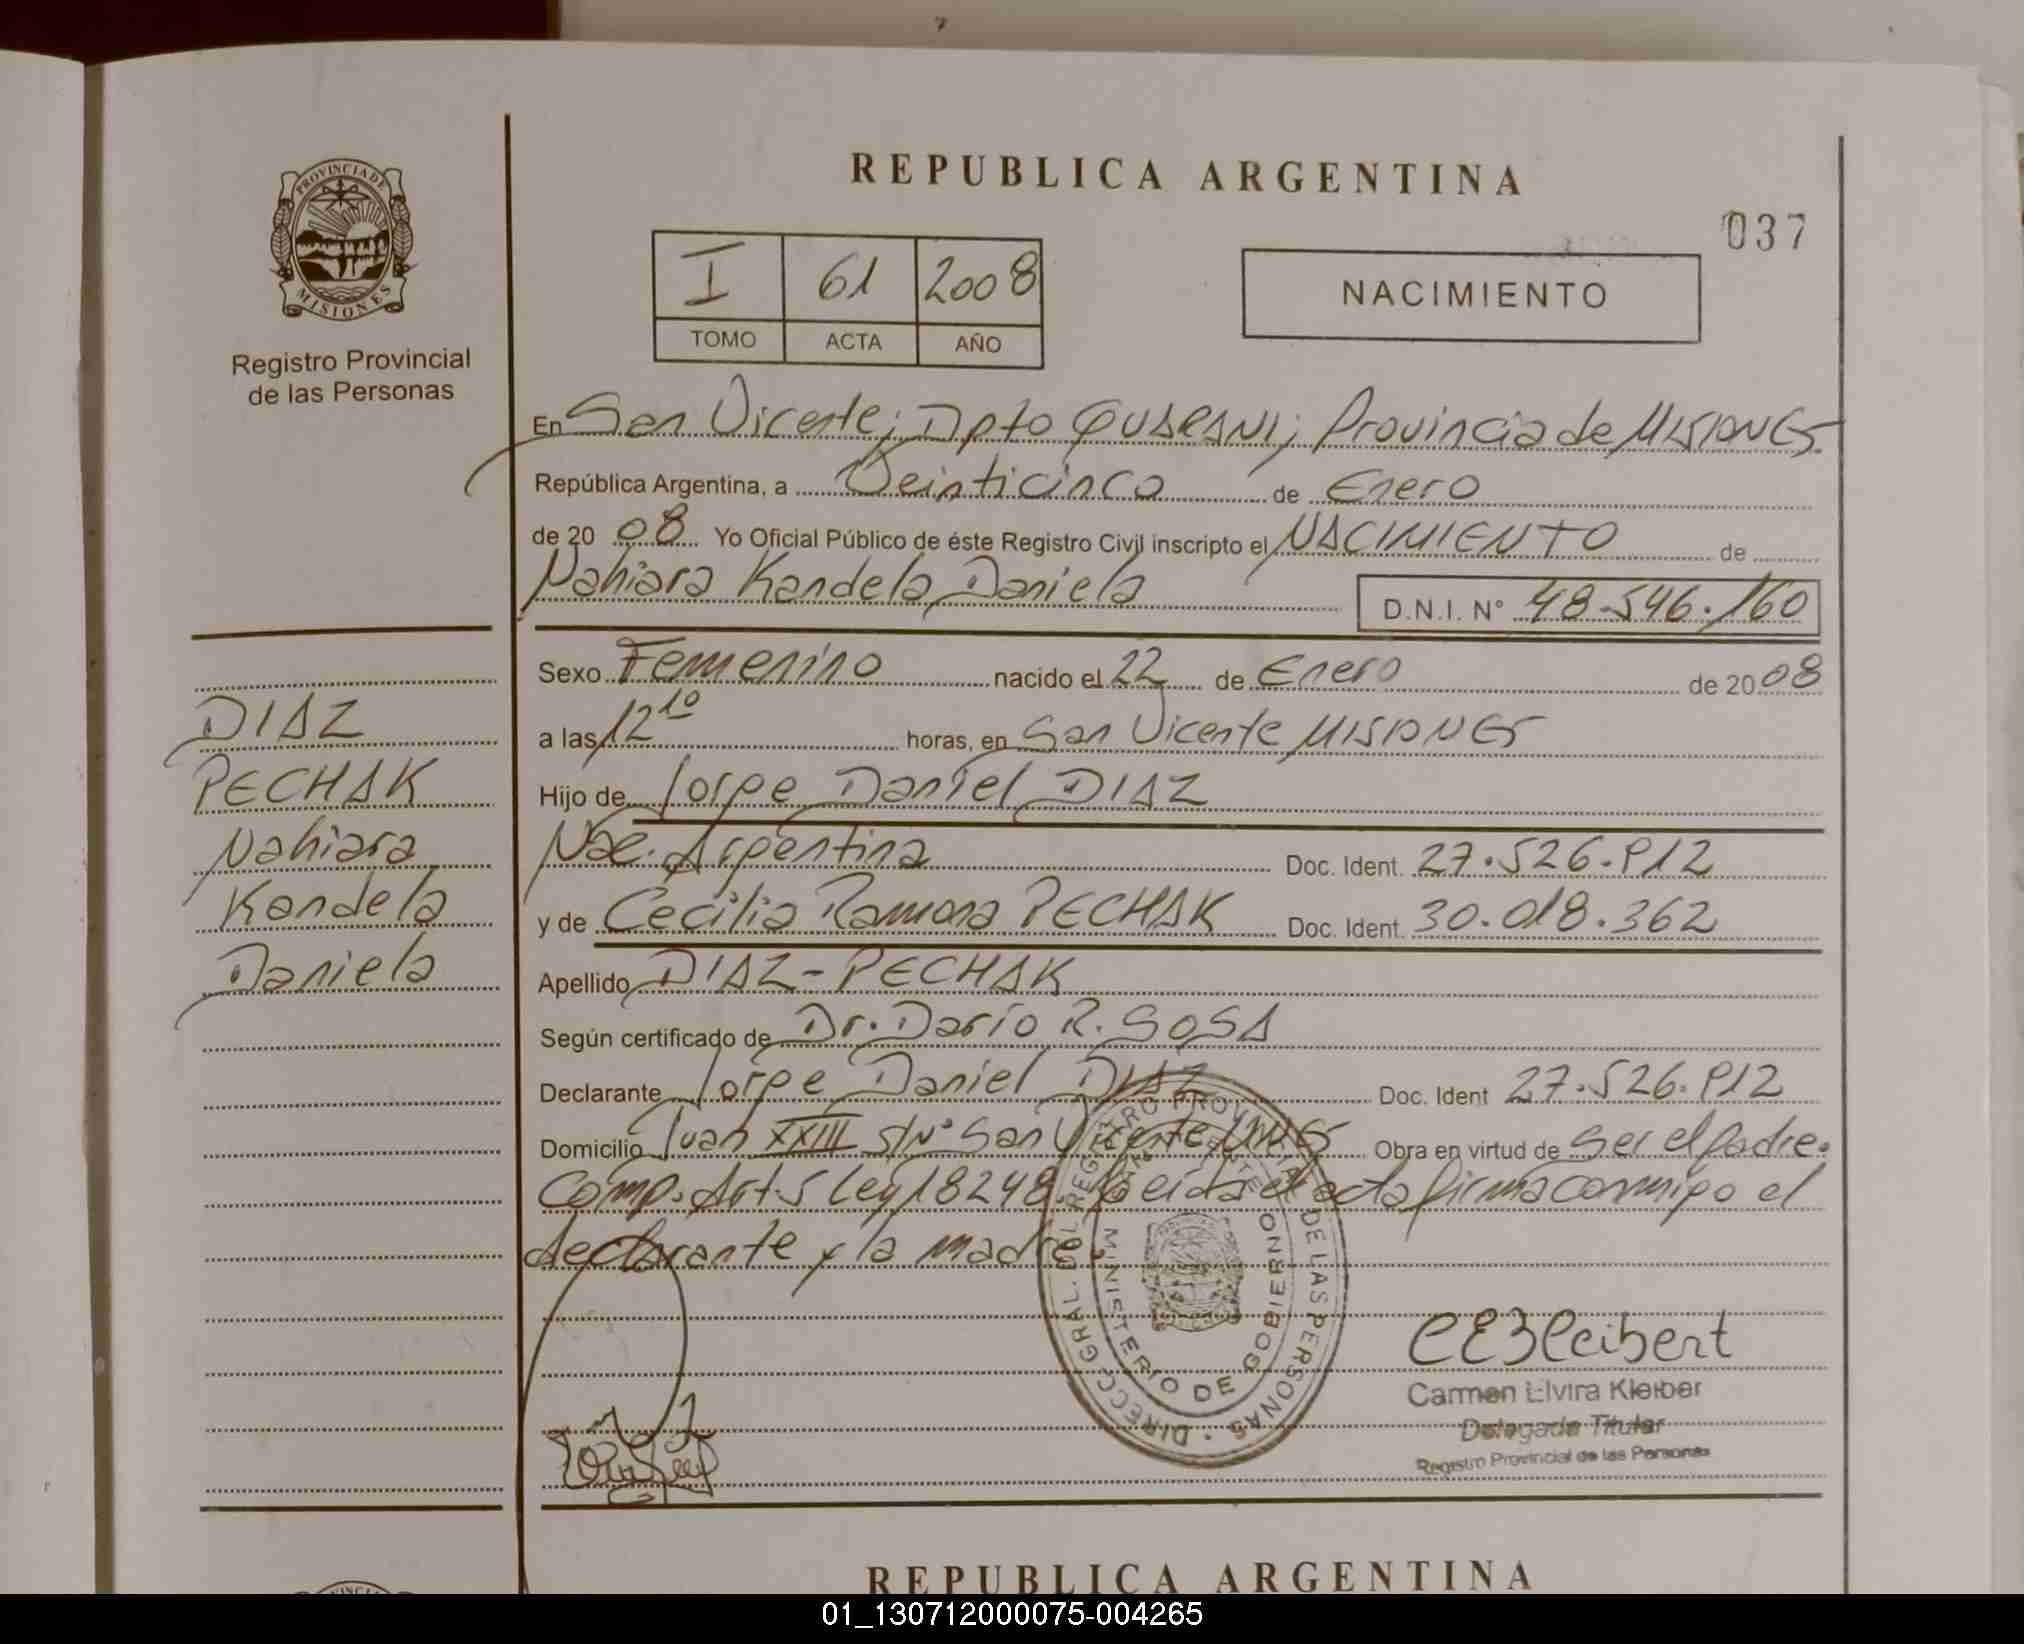 REPUBLICA ARGENTINA
037
PROVINCIA DE
MISIONES
Registro Provincial
de las Personas
I 61 2008
TOMO ACTA AÑO
NACIMIENTO
En San Vicente; Dpto GUARANI; Provincia de MISIONES
República Argentina, a Veinticinco de Enero
de 20 08 Yo Oficial Público de éste Registro Civil inscripto el NACIMIENTO de
Nahiara Kandela Daniela D.N.I. N° 48.546.160
Sexo Femenino nacido el 22 de Enero de 20 08
a las 12 10 horas, en San Vicente MISIONES
Hijo de Jorge Daniel DIAZ
Nac. Argentina Doc. Ident. 27.526.912
y de Cecilia Ramona PECHAK Doc. Ident. 30.018.362
Apellido DIAZ - PECHAK
Según certificado de Dr. Darío R. SOSA
Declarante Jorge Daniel DIAZ Doc. Ident 27.526.912
Domicilio Juan XXIII S/N° San Vicente Mnes Obra en virtud de Ser el padre.
Comp. Art. 5 Ley 18248 Leida el acta firma conmigo el
declarante y la madre.
DIAZ
PECHAK
Nahiara
Kandela
Daniela
DIRECC. GRAL. DEL REGISTRO PROVINCIAL DE LAS PERSONAS
MINISTERIO DE GOBIERNO
SAN VICENTE
Carmen Elvira Kleiber
Delegada Titular
Registro Provincial de las Personas
REPUBLICA ARGENTINA
01_130712000075-004265